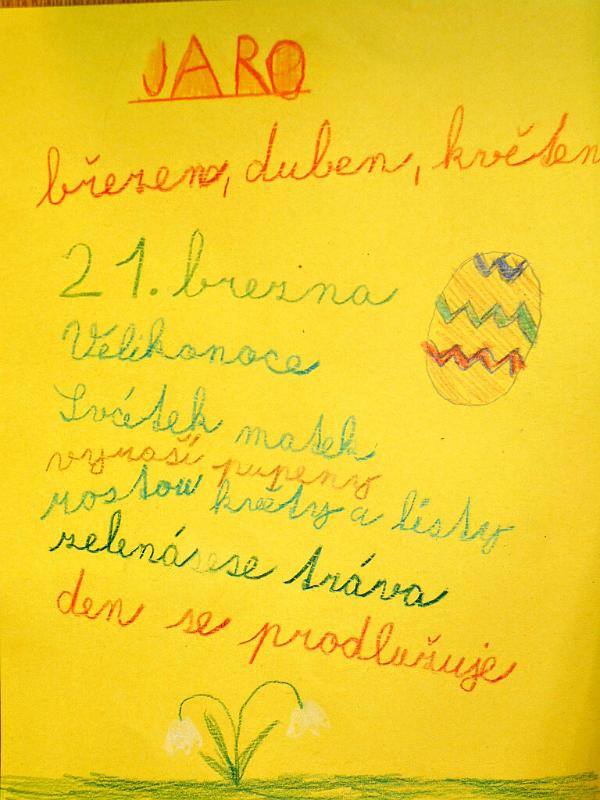 JARO
březen, duben, květen
21. března
Velikonoce
Svátek matek
vyraší pupeny
rostou květy a listy
zelenásese tráva
den se prodlužuje